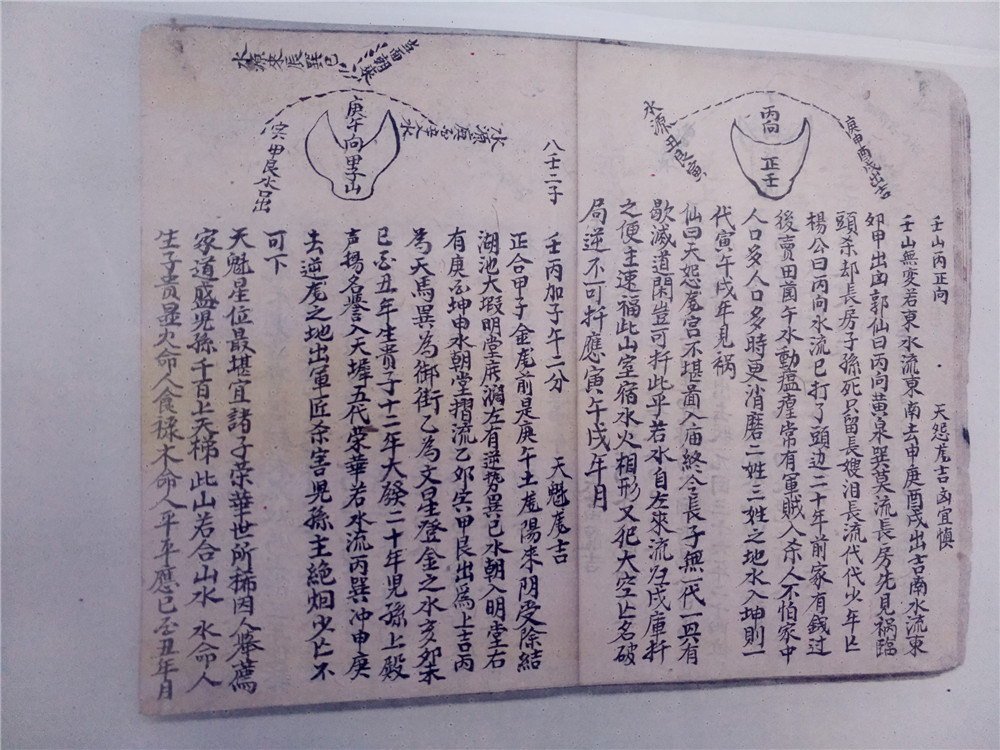 水源丑艮寅
丙向
正壬
庚申酉戌出吉
壬山丙正向 天怨龙吉凶宜慎
壬山無变若東水流東南去申庚酉戌出吉南水流東
卯甲出凶郭仙曰丙向黄泉巽莫流長房先见祸臨
頭杀却長房子孫死只留長嫂泪長流代代少年亡
楊公曰丙向水流巳打了頭边二十年前家有钱过
後賣田菌午水動瘟瘽常有軍贼入杀人不怕家中
人口多人口多時更消磨二姓三姓之地水入坤則一
代寅午戌年見祸
仙曰天怨龙宫不堪啚入庙終令長子無一代一興有
歇滅道閑豈可扦此乎若水自左來流归戌庫扦
之便主速福此山室宿水火相形又犯大空亡名破
局逆不可扦應寅午戌年月
水源來辰巽巳
皆面朝來
庚午向甲子山
水源庚酉辛水
寅甲艮水出
八壬二子 壬丙加子午二分 天魁龙吉
正合甲子金龙前是庚午土龙陽来阴受除结
湖池大瑕明堂底濶左有逆势巽巳水朝入明堂右
有庚酉坤申水朝堂摺流乙卯寅甲艮出為上吉丙
為天馬巽為御街乙為文星登金之水亥卯未
巳酉丑年生貴子十二年大發二十年児孫上殿
声揚名譽入天墀五代荣華若水流丙巽冲申庚
去逆龙之地出軍匠杀害児孫主絶烟少亡不
可下
天魁星位最堪宜諸子荣華世所稀因人舉薦
家道盛児孫千百上天梯此山若合山水 水命人
生子貴显火命人食禄木命人平平應巳酉丑年月